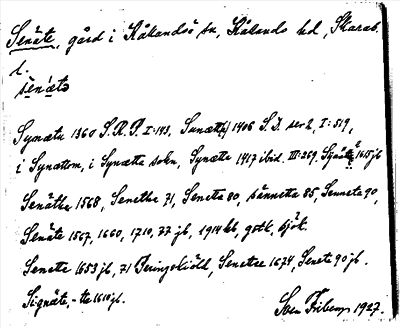 Senäte, gård i Kållandsö sn, Kållands hd, Skarab.
l.
senätə
Symætu 1360 S.R.P. I:143, Sunætt 1406 S.D. ser 2, I:519,
i Synættom, i Synætta sokn, Synæte 1417 ibid. III:269. 1615 jb
Senäthe 1568, Senethe 71, Seneta 80, sänneta 85, Senneta 90,
Senäte 1567, 1660, 1710, 77 jb, 1914 kb, gstk, sjök.
Senette 1653 jb, 71 Peringskiöld, Senetse 1674, Senet 90 jb.
Signäte, -tte 1610 jb.
Sven Friberg 1927.